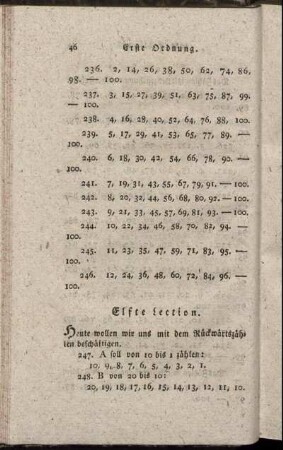 46 Erste Ordnung.
236. 2, 14, 26, 38, 50, 62, 74, 86,
98. — 100.
237. 3, 15, 27, 39, 51, 63, 75, 87, 99.
— 100.
238. 4, 16, 28, 40, 52, 64, 76, 88, 100.
239. 5, 17, 29, 41, 53, 65, 77, 89. —
100.
240. 6, 18, 30, 42, 54, 66, 78, 90. —
100.
241. 7, 19, 31, 43, 55, 67, 79, 91. — 100.
242. 8, 20, 32, 44, 56, 68, 80, 92. — 100.
243. 9, 21, 33, 45, 57, 69, 81, 93. — 100.
244. 10, 22, 34, 46, 58, 70, 82, 94. —
100.
245. 11, 23, 35, 47, 59, 71, 83, 95. —
100.
246. 12, 24, 36, 48, 60, 72, 84, 96. —
100.
Elfte Lection.
Heute wollen wir uns mit dem Rückwärtszäh-
len beschäftigen.
247. A soll von 10 bis 1 zählen:
10, 9, 8, 7, 6, 5, 4, 3, 2, 1.
248. B von 20 bis 10:
20, 19, 18, 17, 16, 15, 14, 13, 12, 11, 10.